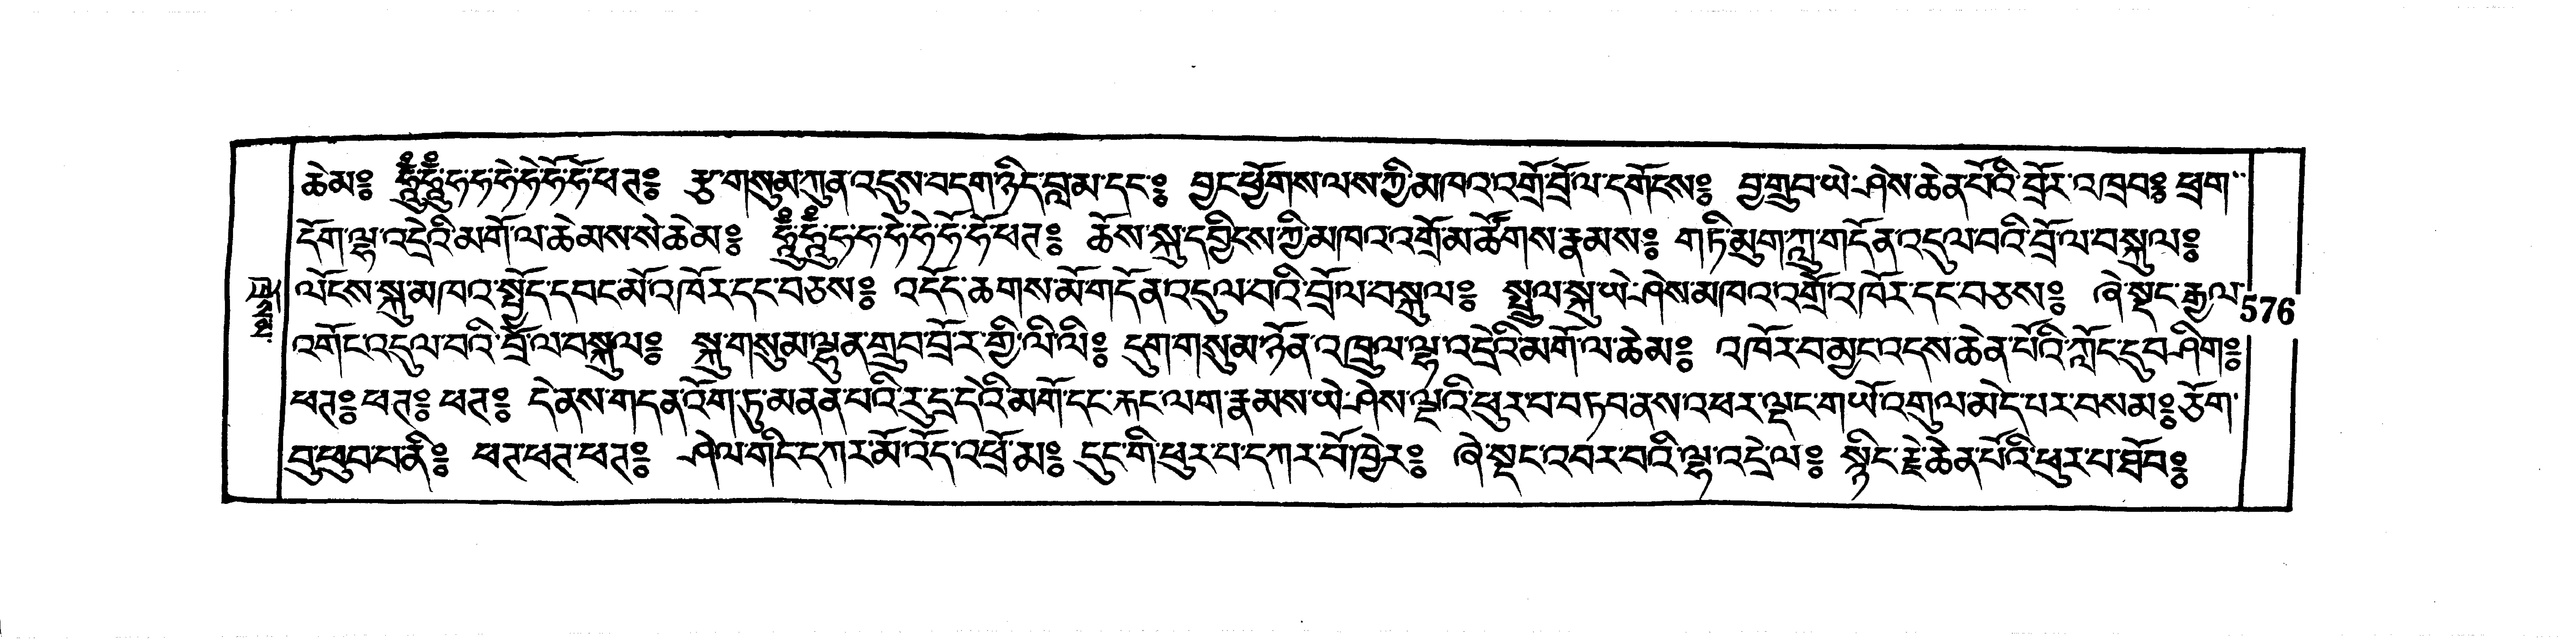 ཆེམ༔ ཧཱུྃ་ཧཱུྃ་ཧ་ཧ་ཧེ་ཧེ་ཧོ་ཧོ་ཕཊ༔ རྩ་གསུམ་ཀུན་འདུས་བདག་ཉིད་བླ་མ་དང་༔ བྱང་ཕྱོགས་ལས་ཀྱི་མཁའ་འགྲོ་བྲོ་ལ་དགོངས༔ བྱ་གྲུབ་ཡེ་ཤེས་ཆེན་པོའི་བྲོ་ར་འཁྲབ༔ ཕྲག་
དོག་ལྷ་འདྲེའི་མགོ་ལ་ཆེམས་སེ་ཆེམ༔ ཧཱུྃ་ཧཱུྃ་ཧ་ཧ་ཧེ་ཧེ་ཧོ་ཧོ་ཕཊ༔ ཆོས་སྐུ་དབྱིངས་ཀྱི་མཁའ་འགྲོ་མ་ཚོགས་རྣམས༔ གཏི་མུག་ཀླུ་གདོན་འདུལ་བའི་བྲོ་ལ་བསྐུལ༔
ལོངས་སྐུ་མཁའ་སྤྱོད་དབང་མོ་འཁོར་དང་བཅས༔ འདོད་ཆགས་མོ་གདོན་འདུལ་བའི་བྲོ་ལ་བསྐུལ༔ སྤྲུལ་སྐུ་ཡེ་ཤེས་མཁའ་འགྲོ་འཁོར་དང་བཅས༔ ཞེ་སྡང་རྒྱལ་
576
འགོང་འདུལ་བའི་བྲོ་ལ་བསྐུལ༔ སྐུ་གསུམ་ལྷུན་གྲུབ་བྲོ་ར་གྱི་ལི་ལི༔ དུག་གསུམ་ཉོན་འཁྲུལ་ལྷ་འདྲེའི་མགོ་ལ་ཆེམ༔ འཁོར་བ་མྱང་འདས་ཆེན་པོའི་ཀློང་དུབ་ཤིག༔
ཕཊ༔ ཕཊ༔ ཕཊ༔ དེ་ནས་གདན་འོག་ཏུ་མནན་པའི་རུ་དྲ་དེའི་མགོ་དང་རྐང་ལག་རྣམས་ཡེ་ཤེས་ལྔའི་ཕུར་པ་བཏབ་ནས་འཕར་ལྡང་གཡོ་འགུལ་མེད་པར་བསམ༔ ཅོག་
བུ་ཕུབ་པ་ནི༔ ཕཊ་ཕཊ་ཕཊ༔ ཤེལ་གིང་དཀར་མོ་འོད་འཕྲོ་མ༔ དུང་གི་ཕུར་པ་དཀར་པོ་ཁྱེར༔ ཞེ་སྡང་འབར་བའི་ལྷ་འདྲེ་ལ༔ སྙིང་རྗེ་ཆེན་པོའི་ཕུར་པ་ཐོབ༔